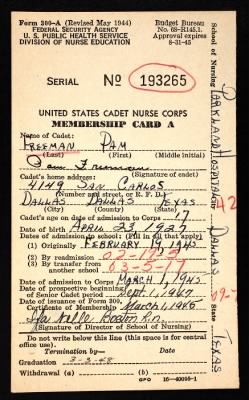 Form 300-A (Revised May 1944)
FEDERAL SECURITY AGENCY
U. S. PUBLIC HEALTH SERVICE
DIVISION OF NURSE EDUCATION
Budget Bureau
No. 68-R145.1.
Approval expires
8-31-45
SERIAL No 193265
UNITED STATES CADET NURSE CORPS
MEMBERSHIP CARD A
Name of Cadet:
FREEMAN PAM
(Last) (First) (Middle initial)
Pam Freeman
(Signature of cadet)
Cadet's home address:
4149 SAN CARLOS
(Number and street, or R. F. D.)
DALLAS DALLAS TEXAS
(City) (County) (State)
Cadet's age on date of admission to Corps 17
Date of birth APRIL 23 1927
Dates of admission to school: (Fill in all that apply)
(1) Originally FEBRUARY 19, 1945
(2) By readmission
(3) By transfer from
another school
Date of admission to Corps MARCH 1, 1945
Date of prospective beginning
of Senior Cadet period Sept. 1, 1947
Date of issuance of Form 300,
Certificate of Membership March 1, 1945
(Signature of Director of School of Nursing)
Do not write below this line (this space is for central
office use).
Termination by— Date
Graduation 3-3-48
Withdrawal (a) (b)
GPO 16-40096-1
School of Nursing PARKLAND HOSPITAL DALLAS State TEXAS